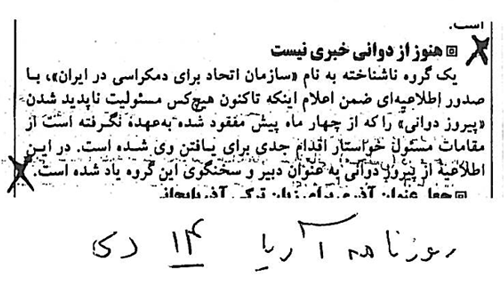 است.
هنوز از دوانی خبری نیست
یک گروه ناشناخته به نام «سازمان اتحاد برای دمکراسی در ایران»، با
صدور اطلاعیه‌ای ضمن اعلام اینکه تاکنون هیچ‌کس مسئولیت ناپدید شدن
«پیروز دوانی» را که از چهار ماه پیش مفقود شده به‌عهده نگرفته است از
مقامات مسئول خواستار اقدام جدی برای یافتن وی شده است. در این
اطلاعیه از پیروز دوانی به عنوان دبیر و سخنگوی این گروه یاد شده است.
جعل عنوان آذری برای زبان ترکی آذربایجانی
روزنامه آریا ۱۴ دی